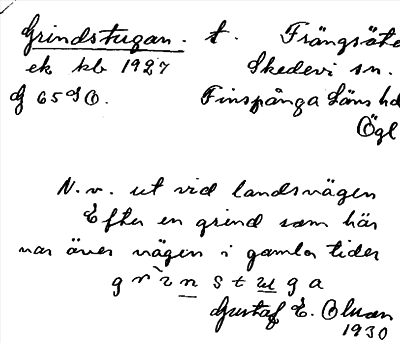 Grindstugan. t. Frängsäte
ek kb 1927 Skedevi sn.
G 65 SO. Finspånga läns hd
Ögl
N.v. ut vid landsvägen
Efter en grind som här
var över vägen i gamla tider
grinstuga
Gustaf E. Olsson
1930